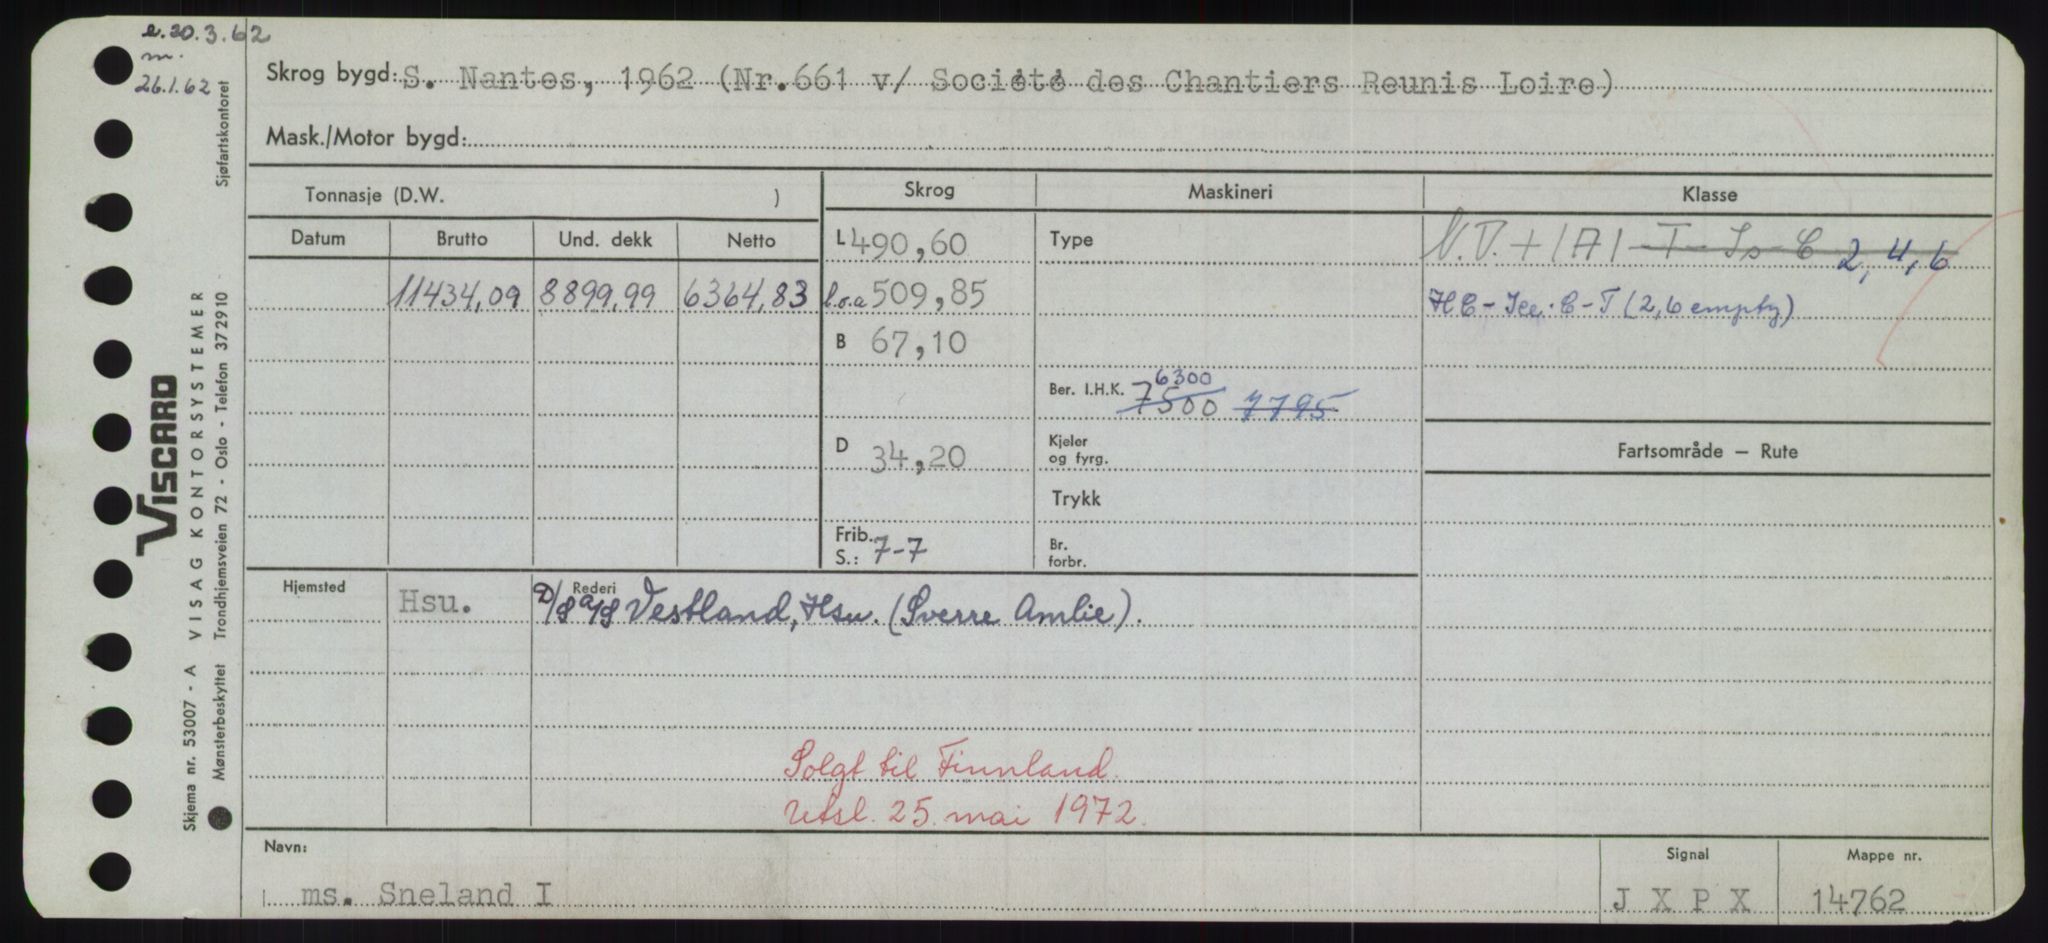 e. 30.3.62
m.
26.1.62
Sjøfartskontoret
Skrog bygd: S. Nantes, 1962 (Nr.661 v/ Société des Chantiers Reunis Loire)
Mask./Motor bygd:
Tonnasje (D.W. )
Skrog
Maskineri
Klasse
Datum
Brutto
Und. dekk
Netto
L 490,60
Type
V.V. + 1A1 - T - Is - C 2, 4, 6
11434,09
8899,99
6364,83
l.o.a 509,85
HC - Ice. C - T (2,6 empty)
B 67,10
Ber. I.H.K. 7500 6300 7795
D 34,20
Kjeler
og fyrg.
Fartsområde – Rute
Trykk
Frib.
S.: 7-7
Br.
forbr.
Hjemsted
Hsu.
Rederi
D/S A/S Vestland, Hsu. (Sverre Amlie).
Solgt til Finnland.
Utsl. 25. mai 1972.
Navn:
ms. Sneland I
Signal
J X P X
Mappe nr.
14762
VISCARD
Skjema nr. 53007 - A VISAG KONTORSYSTEMER
Mønsterbeskyttet Trondhjemsveien 72 - Oslo - Telefon 372910